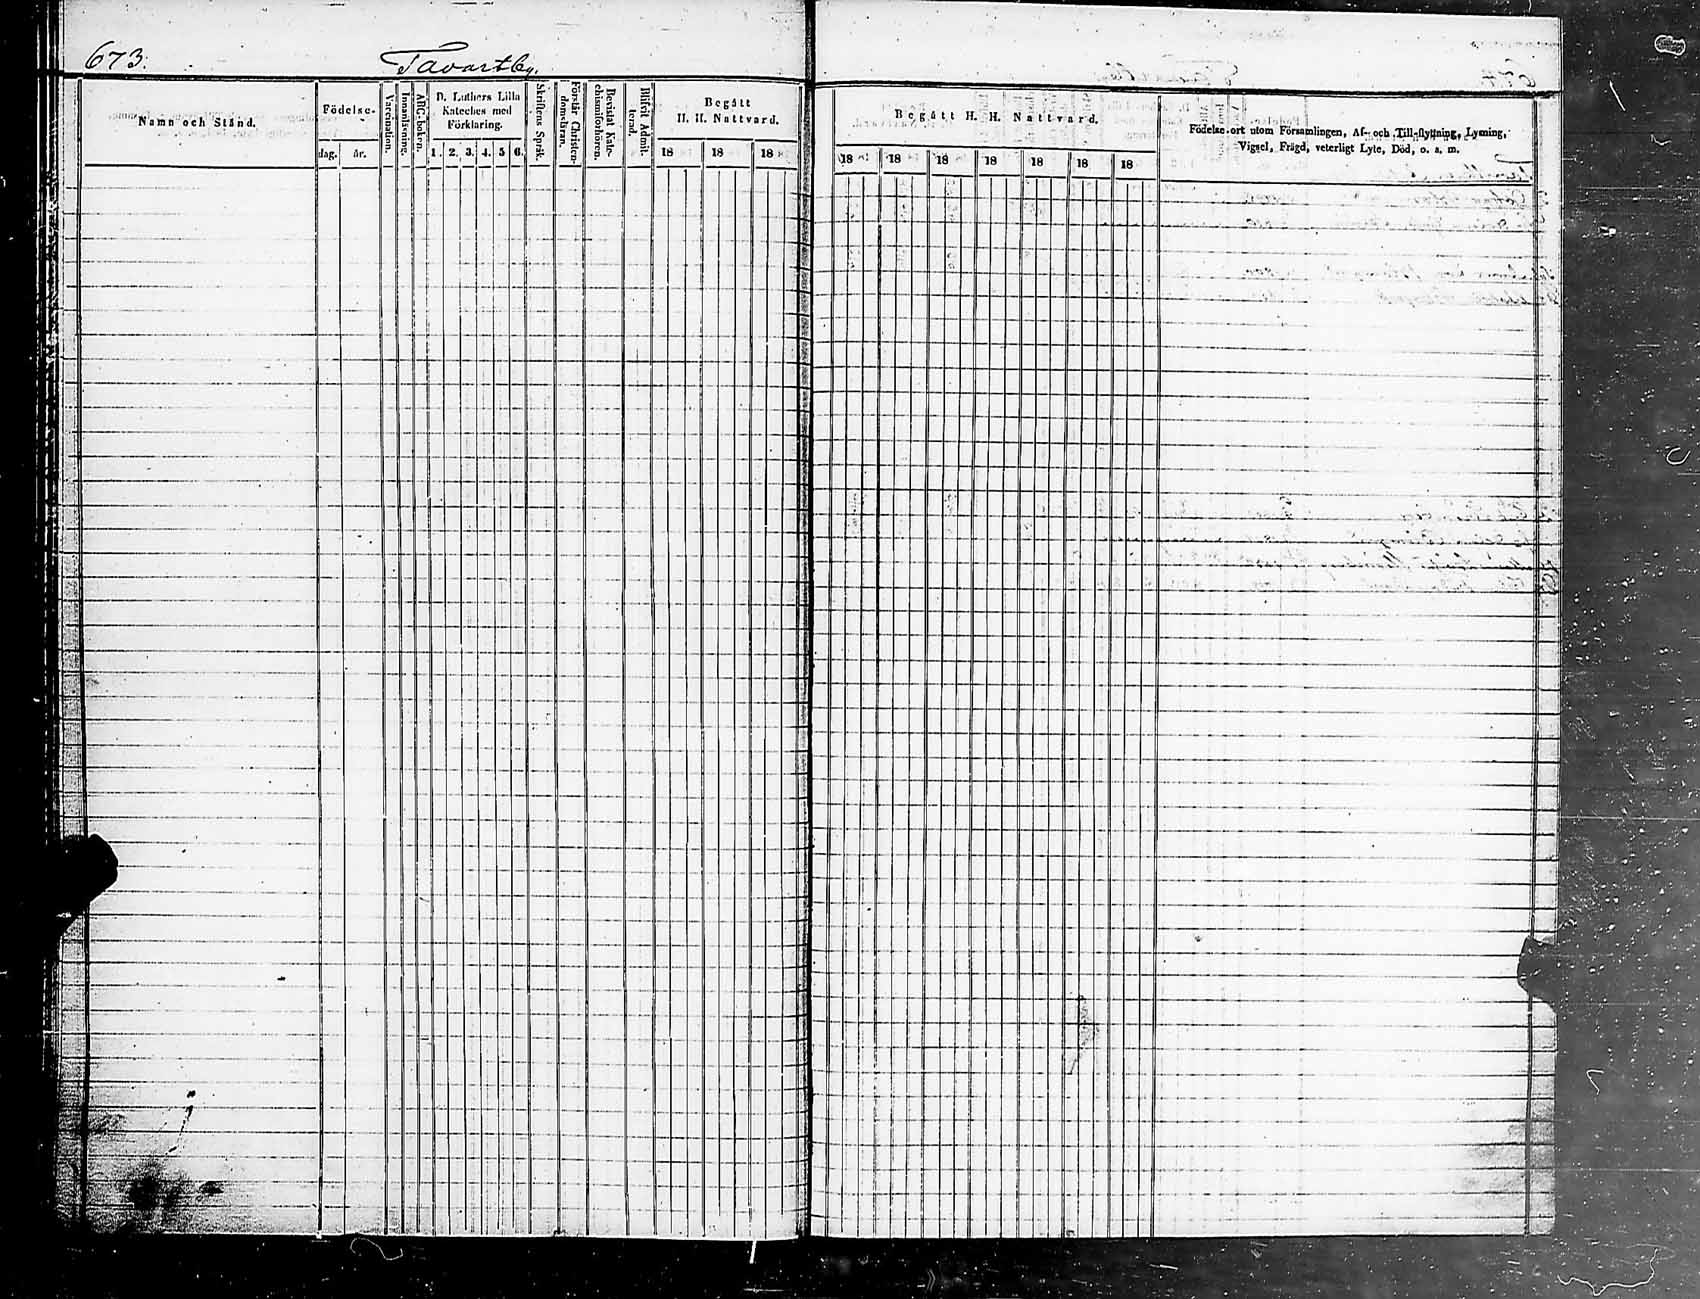 673.
Tavartby.
Namn och Stånd.
Födelse-
dag. år.
Vaccination.
Innanläsning.
ABC-boken.
D. Luthers Lilla
Kateches med
Förklaring.
1. 2. 3. 4. 5 6.
Skriftens Språk.
Förstår Christen-
domsläran.
Bevistat Kate-
chismiförhören.
Blifvit Admit-
terad.
Begått
H. H. Nattvard.
18 18 18
Begått H. H. Nattvard.
18 18 18 18 18 18 18
Födelse-ort utom Församlingen, Af- och Till-flyttning, Lysning,
Vigsel, Frägd, veterligt Lyte, Död, o. s. m.